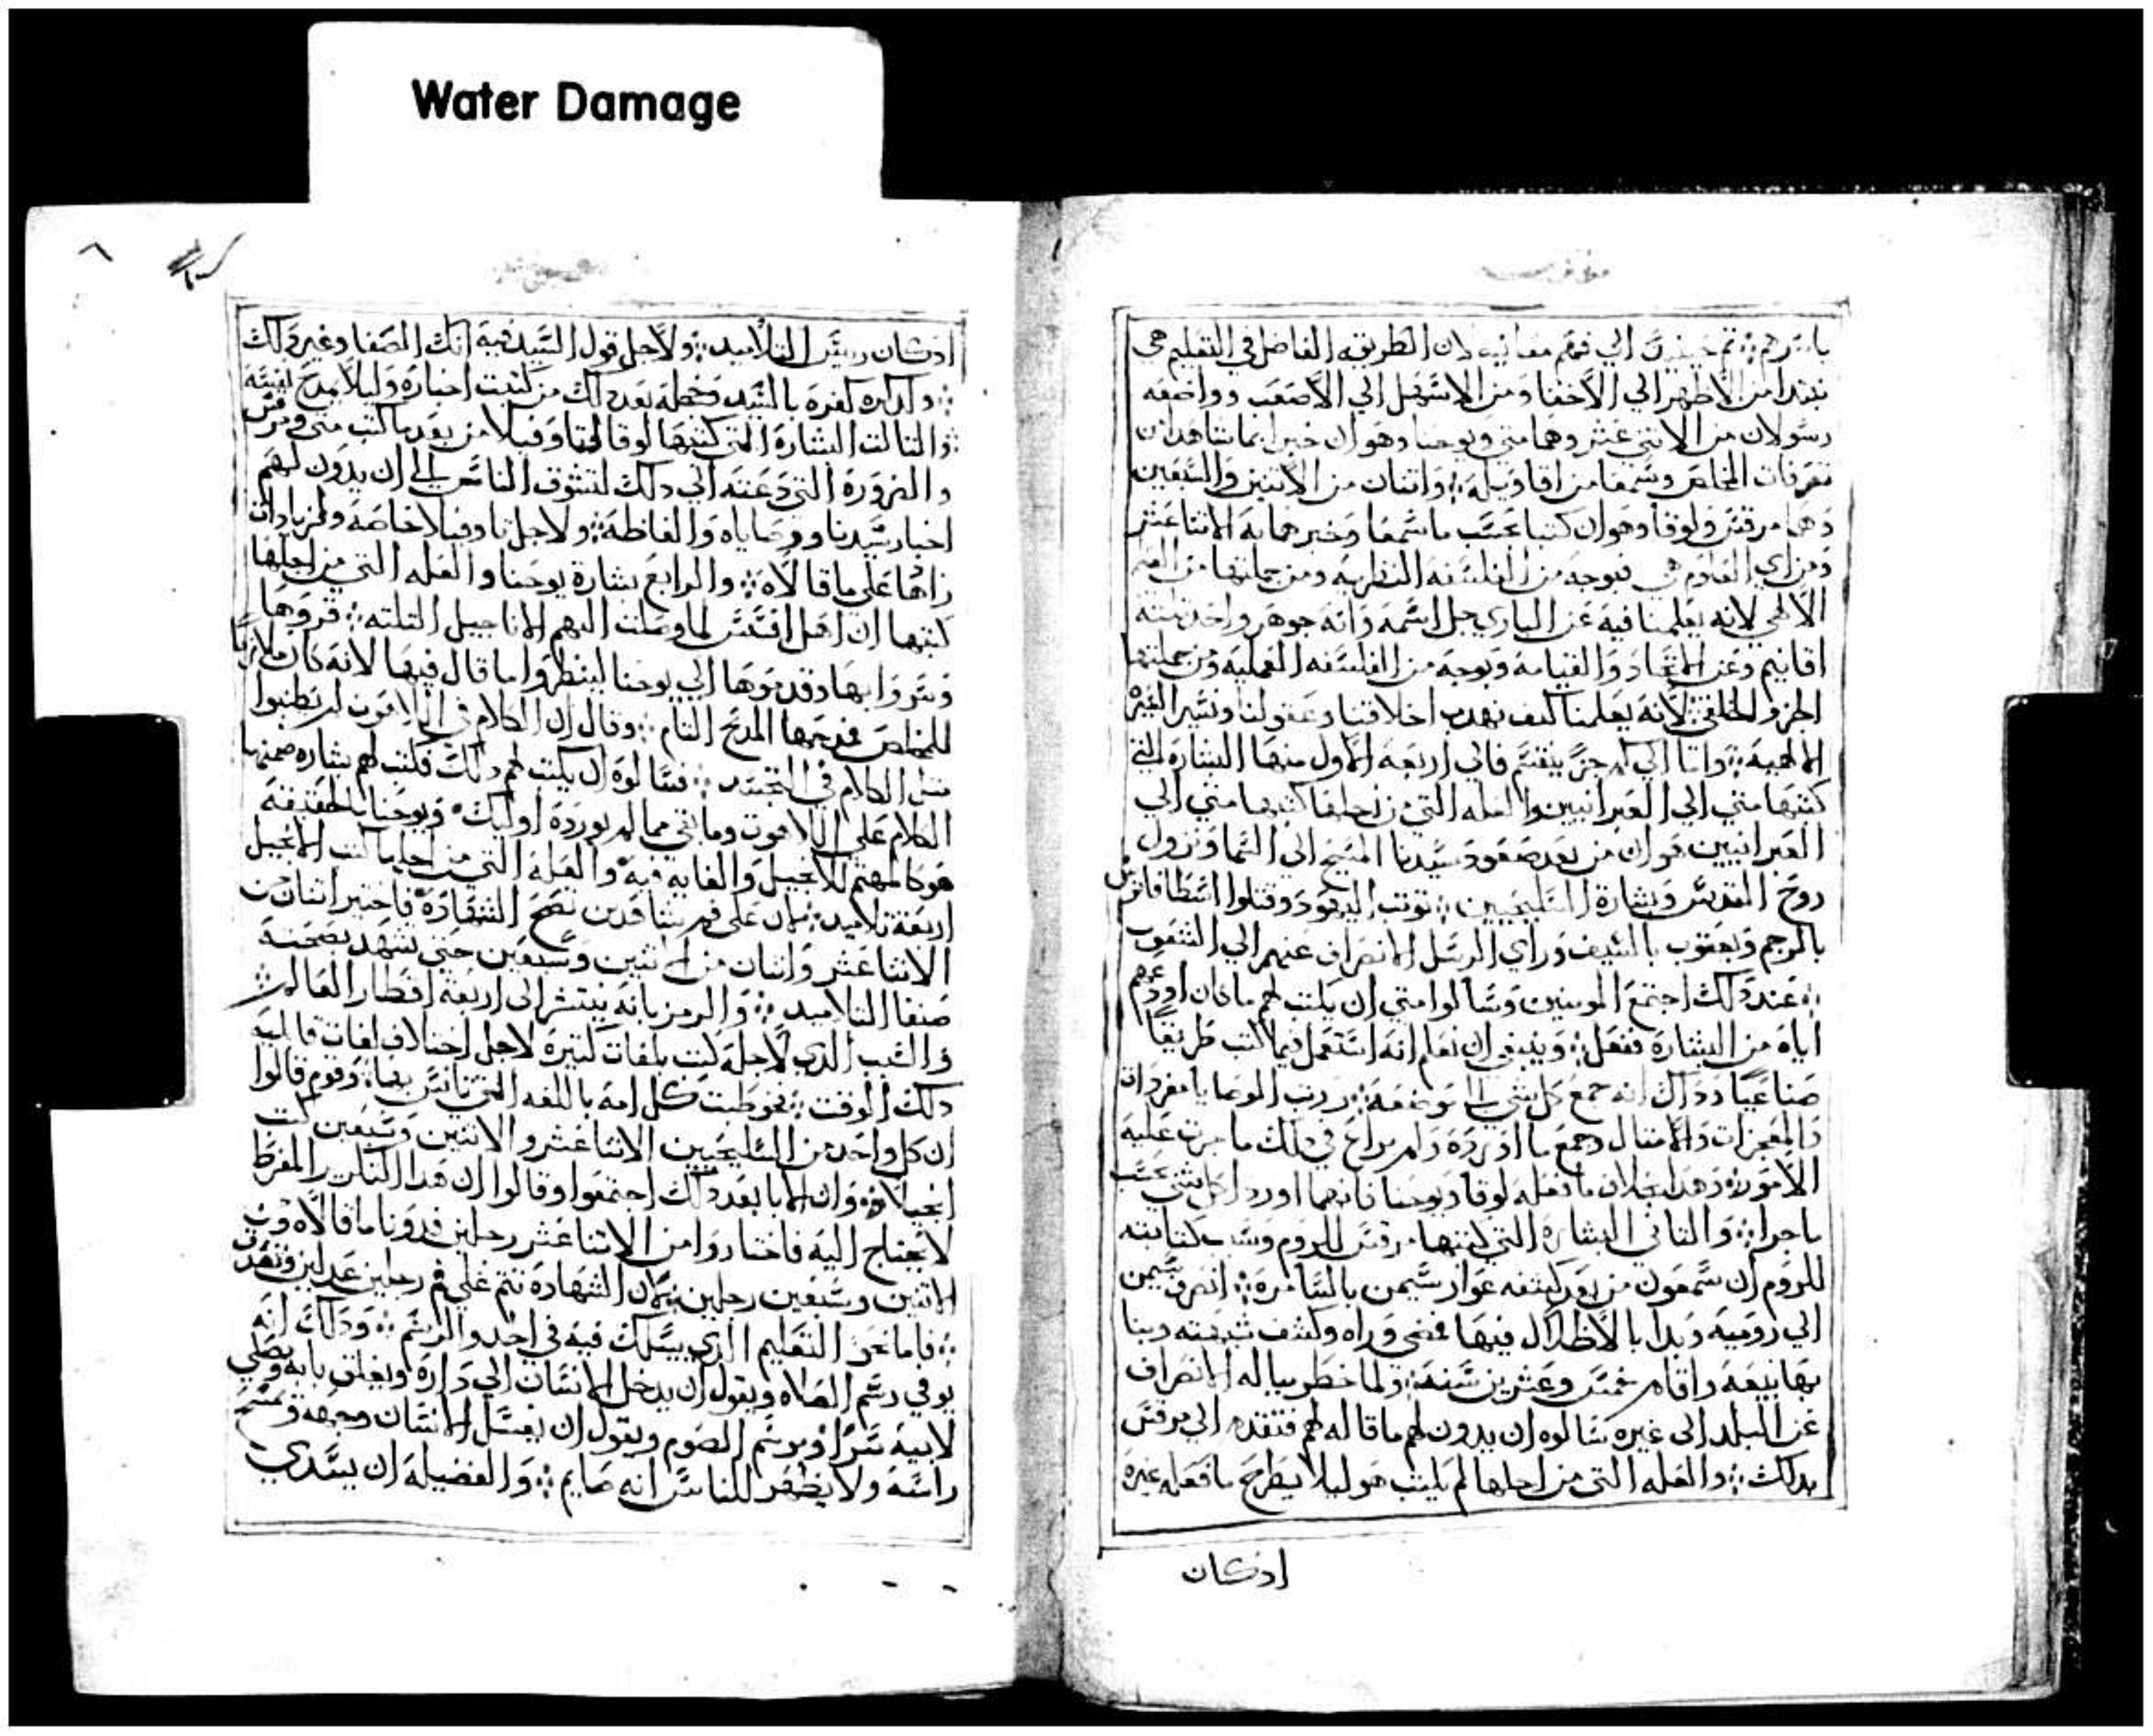 Water Damage
ثم حينئذ الي فهم معانيه لان الطريقه الفاضل في التعليم هي
نبتدا من الاظهر الي الاخفا ومن الاسهل الي الاصعب وواضعه
رسولان من الاثني عشر وهما متي ويوحنا وهوان خبرا بما شاهدا من
تصرفات المخلص وسمعا من اقاويله ۞ واتنان من الاتنين والسبعين
وهما مرقس ولوقا وهوان كتبا بحسب ما سمعا وخبرهما به الاتنا عشر
ومن اي العلوم هي فبوجه من الفلسفه النظريه ومن جملتها من العلم
الالهي لانه يعلمنا فيه عن الباري جل اسمه وانه جوهر واحد تلتة
اقانيم وعن المعاد والقيامة وبوجه من الفلسفه العمليه ومن جملتها
الجزو الخلقي لانه يعلمنا كيف نهدب اخلاقنا وعقولنا ونسير السيرة
الالهية ۞ واما الي كم جزء ينقسم فالي اربعة الاول منها البشارة التي
كتبها متي الي العبرانيين والعله التي من اجلها كتبها متي الي
العبرانيين هو ان من بعد صعود سيدنا المسيح الي السما ونزول
روح القدس وبشارة السليحيين ۞ توتب اليهود وقتلوا اسطافانس
بالرجم ويعقوب بالسيف وراي الرسل الانصراف عنهم الي الشعوب
۞ عند دلك اجتمع المومنين وسالوا متي ان يكتب لهم ما كان اودعهم
اياه من البشارة ففعل ۞ وينبغي ان نعلم انه استعمل فيما كتب طريقاً
صناعياً ودالك انه جمع كل شي الي موضعه ۞ ورتب الوصايا مفردات
والمعجزات والامتال وجمع ما اورده ولم يراع في دلك ما جرت عليه
الامور ۞ وهدا بخلاف ما فعله لوقا ويوحنا فانهما اوردا كل شي بحسب
ما جرا ۞ والتاني البشارة التي كتبها مرقس للروم وسبب كتابته
للروم ان سمعون من بعد كشفه عوار سيمن بالسامرة ۞ انصرف سيمن
الي رومية وبدا بالاظلال فيها فمضي وراه وكشف شبهته وبنا
بها بيعة واقام خمس وعشرين سنة ۞ ولما خطر بباله الانصراف
عن البلد الي غيره سالوه ان يدون لهم ما قاله لهم فتقدم الي مرقس
بدلك ۞ والعله التي من اجلها لم يكتب هو ليلا يطرح ما فعله غيره
ادكان
٨
ادكان رييس التلاميد ۞ ولاجل قول السيد فيه انك الصفا وغير دلك
۞ وكفره بالسيد وخطله بعد دلك من كتبت اخباره وليلا يمدح نفسه
۞ والتالت البشارة التي كتبها لوقا من بعد ما كتب متي ومرقس
والضرورة التي دعته الي دلك لتشوق الناس الي ان يدون لهم
اخبار سيدنا ووصاياه والفاظه ۞ ولاجل تاوفيلا خاصة ولزيادات
زادها علي ما قالاه ۞ والرابع بشارة يوحنا والعله التي من اجلها
كتبها ان اهل افسس لما وصلت اليهم الاناجيل التلته ۞ قروها
وسروا بها وقدموها الي يوحنا لينظروا ما قال فيها لانه كان ملازماً
للمخلص فمدحها المدح التام ۞ وقال ان الكلام في اللاهوت لم يطنبوا
متل الكلام في التجسد ۞ فسالوه ان يكتب لهم دلك فكتب لهم بشاره ضمنها
الكلام علي اللاهوت وما بقي مما لم يورده اوليك ۞ ويوحنا بالحقيقه
هو كالمهتم للانجيل والغايه فيه والعله التي من اجلها كتب الانجيل
اربعة تلاميد ۞ لان علي فم شاهدين تصح الشهادة فاختير اتنان من
الاتنا عشر واتنان من الاتنين وسبعين حتي تشهد بصحته
صنفا التلاميد ۞ والرمز بانه ينتشر الي اربعة اقطار العالم ۞
والسبب الدي لاجله كتب بلغات كتيرة لاجل اختلاف لغات قالبيه
دلك الوقت ۞ فخوطبت كل امة باللغه التي تانس بها ۞ وقوم قالوا
ان كل واحد من السليحيين الاتنا عشر والاتنين وسبعين كتب
انجيلا ۞ وان الابا بعد دلك اجتمعوا وقالوا ان هدا التكرير المفرط
لا يحتاج اليه فاختاروا من الاتنا عشر رجلين فدونا ما قالاه ومن
الاتنين وسبعين رجلين ۞ لان الشهادة تتم علي فم رجلين عدلين
۞ فاما نحن التعليم الدي يسلك فيه في الحد والرسم ۞ ودلك انه
يوفي رسم الصلاه ويقول ان يدخل الانسان الي داره ويغلق بابه ويصلي
لابيه سراً ويرسم الصوم ويقول ان يغسل الانسان وجهه ويمسح
راسه ولا يظهر للناس انه صايم ۞ والفضيله ان يسدي